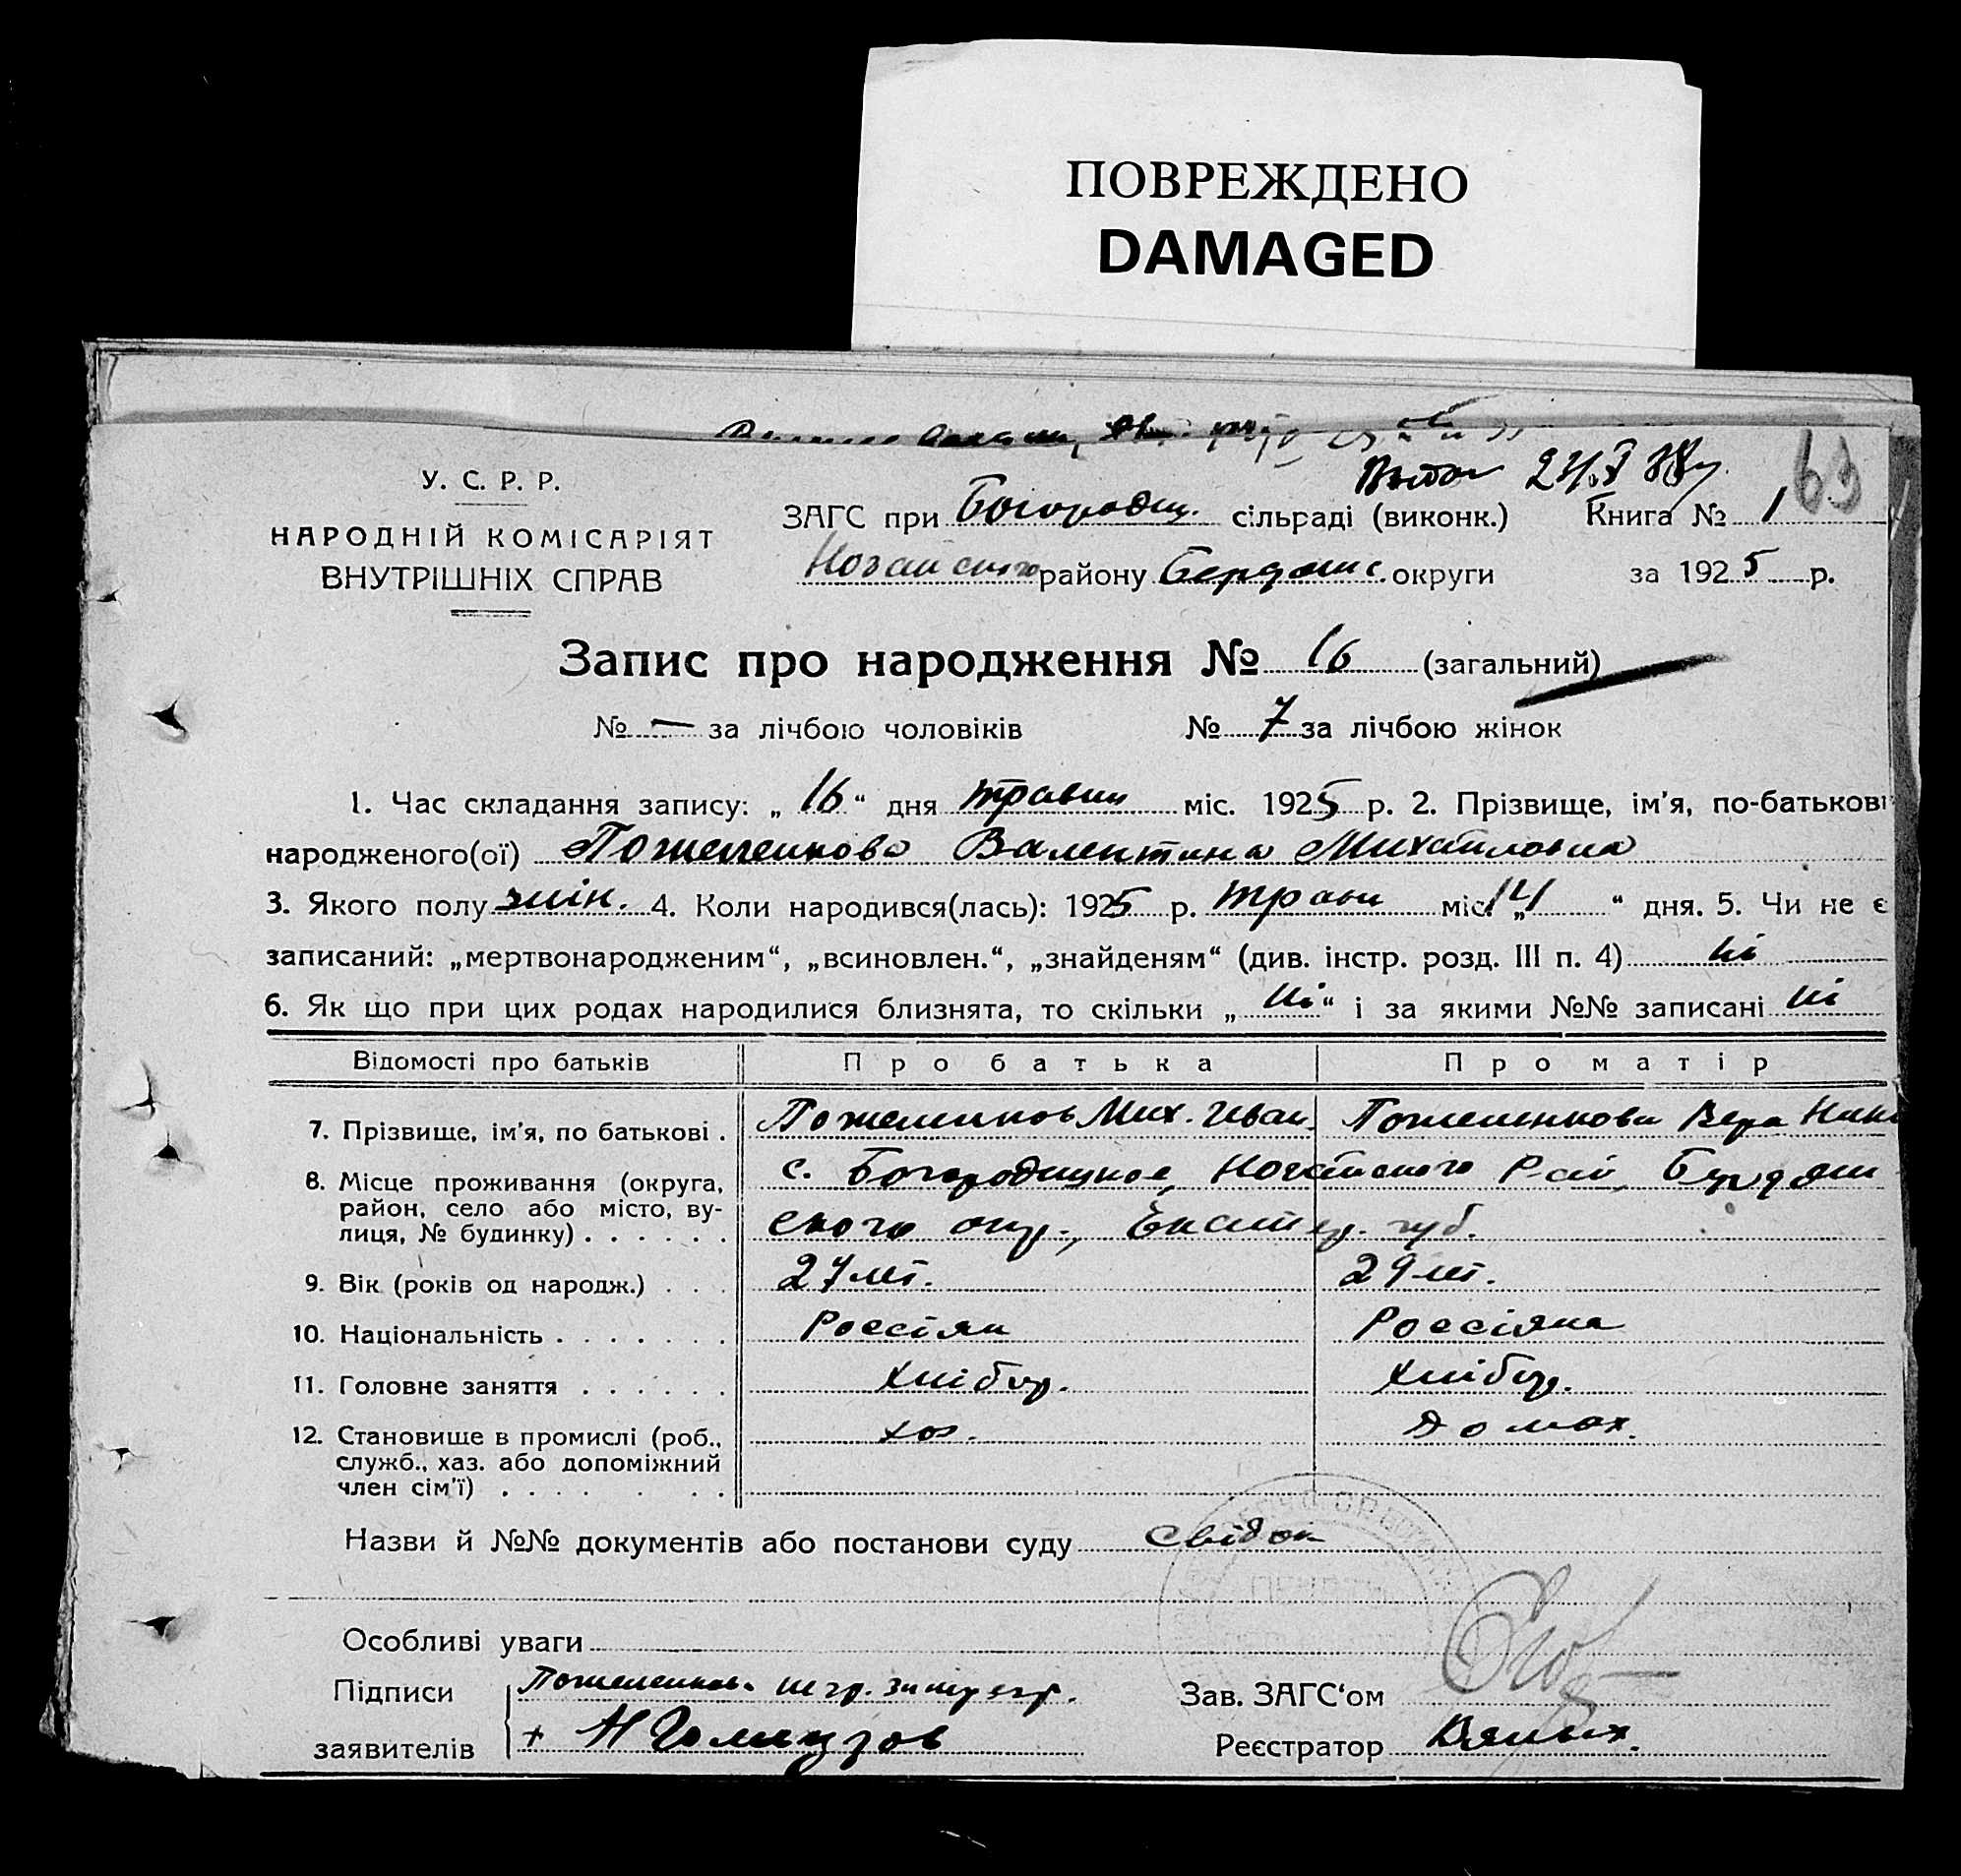 ПОВРЕЖДЕНО
DAMAGED
63
У. С. Р. Р.
НАРОДНІЙ КОМІСАРІЯТ
ВНУТРІШНІХ СПРАВ
ЗАГС при Богородиц. сільраді (виконк.) Книга № 1
Ногайського району Бердянс. округи за 1925 р.
Запис про народження № 16 (загальний)
№ — за лічбою чоловіків № 7 за лічбою жінок
1. Час складання запису: „16“ дня травня міс. 1925 р. 2. Прізвище, ім'я, по-батькові
народженого(ої) Пожеленкова Валентина Михайловна
3. Якого полу жін. 4. Коли народився(лась): 1925 р. трав міс. „14“ дня. 5. Чи не є
записаний: „мертвонародженим“, „всиновлен.“, „знайденям“ (див. інстр. розд. III п. 4) ні
6. Як що при цих родах народилися близнята, то скільки „ні“ і за якими №№ записані ні
Відомості про батьків Про батька Про матір
7. Прізвище, ім'я, по батькові . Пожеленков Мих. Иван. Пожеленкова Вера Ник
8. Місце проживання (округа, район, село або місто, вулиця, № будинку) . . . . . . с. Богородицкое, Ногайского Рай, Бердян
ского окр., Екатер. губ.
9. Вік (років од народж.) . . . 27 лет. 29 лет.
10. Національність . . . . . . . Россіян Россіяна
11. Головне заняття . . . . . . хлібор. хлібор.
12. Становище в промислі (роб., служб., хаз. або допоміжний член сім'ї) . . . . . . . хоз. домох.
Назви й №№ документів або постанови суду свідок
Особливі уваги
Підписи Пожеленков
заявителів +
Зав. ЗАГС‘ом
Реєстратор